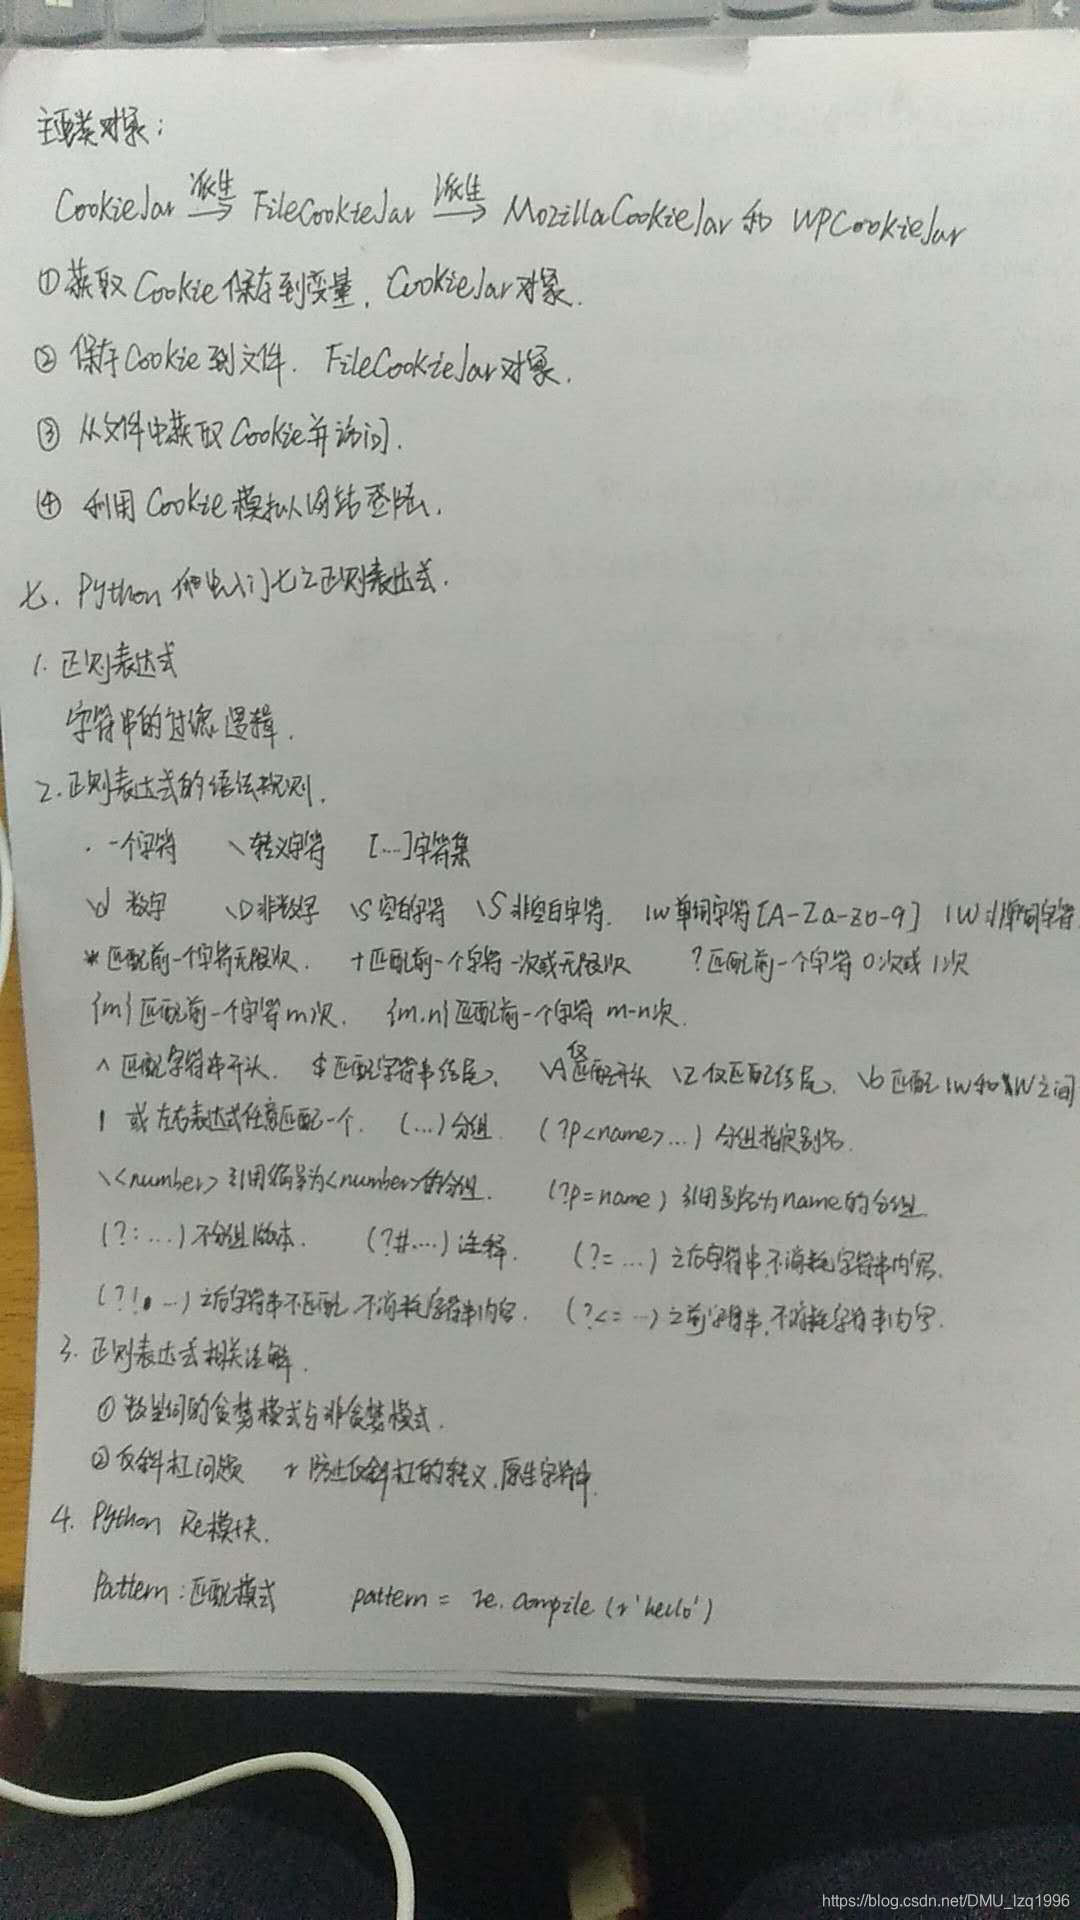 主要类对象:
CookieJar 派生→ FileCookieJar 派生→ MozillaCookieJar 和 WPCookieJar
①获取Cookie保存到变量, CookieJar对象.
② 保存Cookie到文件. FileCookieJar对象.
③ 从文件中获取Cookie并访问.
④ 利用Cookie模拟网站登陆.
七. Python爬虫入门七之正则表达式.
1. 正则表达式
字符串的过滤逻辑.
2. 正则表达式的语法规则.
. 一个字符 \ 转义字符 [...]字符集
\d 数字 \D非数字 \s空白字符 \S非空白字符. \w单词字符[A-Za-z0-9] \W非单词字符
* 匹配前一个字符无限次. +匹配前一个字符一次或无限次 ?匹配前一个字符0次或1次
{m}匹配前一个字符m次. {m,n}匹配前一个字符 m-n次.
^ 匹配字符串开头. $匹配字符串结尾. \A仅匹配开头 \Z仅匹配结尾. \b匹配\w和\W之间
| 或 左右表达式任意匹配一个. (...)分组. (?P<name>...) 分组指定别名.
\<number>引用编号为<number>的分组. (?P=name) 引用别名为name的分组.
(?:...)不分组版本. (?#...)注释. (?=...) 之后字符串,不消耗字符串内容.
(?!...)之后字符串不匹配,不消耗字符串内容. (?<=...)之前字符串,不消耗字符串内容.
3. 正则表达式相关注解.
① 数量词的贪婪模式与非贪婪模式.
② 反斜杠问题 r 防止反斜杠的转义,原生字符串.
4. Python Re模块.
Pattern:匹配模式 pattern = re.compile(r'hello')
https://blog.csdn.net/DMU_lzq1996